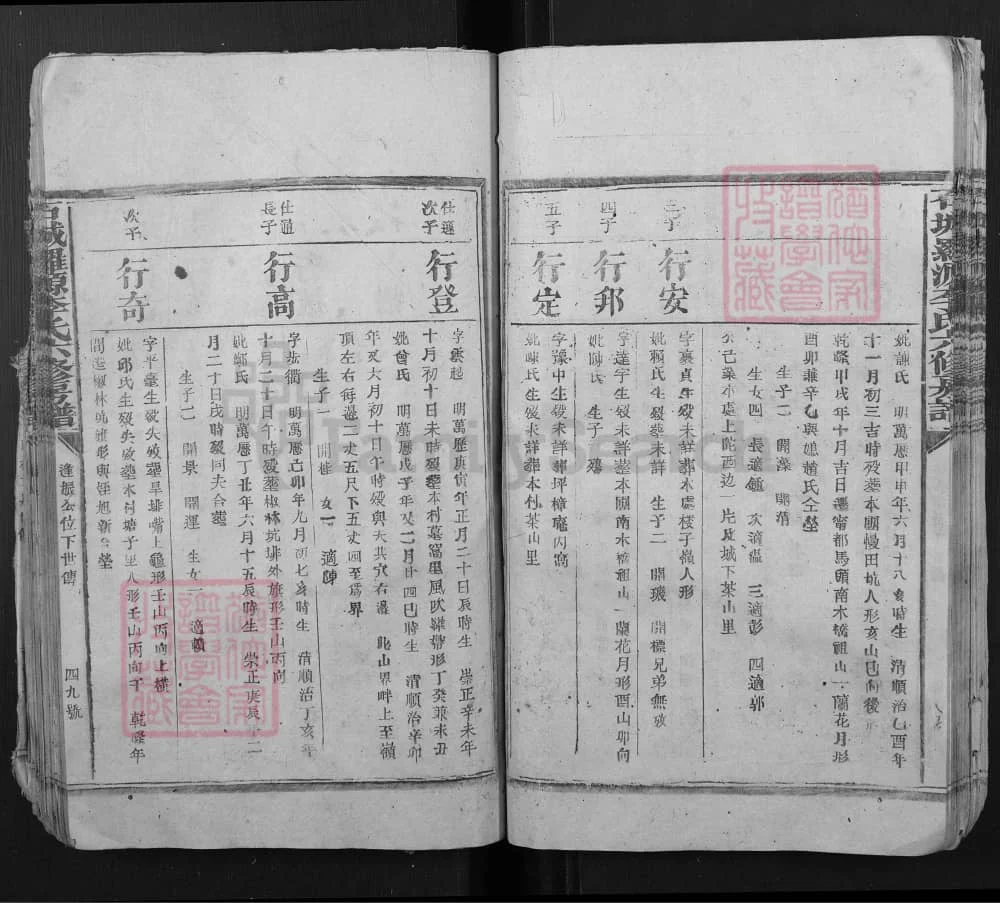 妣謝氏　明萬歷甲申年六月十八　時生　清順治乙酉年
十一月初三吉時歿葬本關慢田坑人形亥山巳向後
乾隆甲戌年十月吉日遷甯都馬頭南木橋祖山一蘭花月形
酉卯兼辛乙與媳賴氏仝塋
生子二　開藻　開清
生女四　長適鍾　次適溫　三適彭　四適郭
三子
行安
字襄貞生歿未詳葬本處棱子嶺人形
妣賴氏生歿葬未詳　生子二　開璣　開標兄弟無嗣
四子
行邦
字達宇生歿未詳葬本關南木橋祖山一蘭花月形酉山卯向
妣陳氏　生子　殤
五子
行定
字豫中生歿未詳葬坪樟窩內窩
妣陳氏生歿未詳葬本村茶山里
仕遜
次子
行登
字雲起　明萬歷庚寅年正月二十日辰時生　崇正辛未年
十月初十日未時歿葬本村墓窩里風吹羅帶形丁癸兼未丑
妣曾氏　明萬歷戊子年又二月廿四巳時生　清順治辛卯
年又六月初十日午時歿與夫共穴右邊　此山界畔上至嶺
頂左右每邊二丈五尺下五丈四至為界
生子一　開桂　女一　適陳
仕通
長子
行高
字步衢　明萬歷己卯年九月初七　時生　清順治丁亥年
十月二十日午時歿葬椒林坑排外旗形壬山丙向
妣鄢氏　明萬歷丁丑年六月十五辰時生　崇正庚辰十二
月二十日戌時歿同夫合葬
生子二　開景　開運　生女一　適賴
次子
行奇
字平臺生歿失攷葬旱排嘴上龜形壬山丙向上橫
妣邱氏生歿失攷葬本村塘子里人形壬山丙向子　乾隆年
間遷椒林坑旗形與姪旭新合塋
石城羅源李氏六修房譜
逢振公位下世傳
四九號